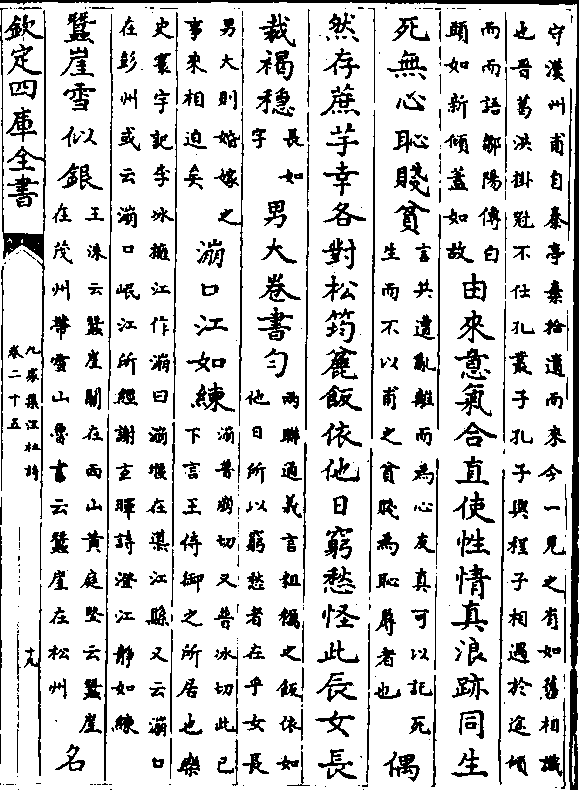 守漢州甫自秦亭棄拾遺而來今一見之有如舊相識
也晉葛洪掛冠不仕孔叢子孔子與程子相遇於途傾
而而語鄒陽傳白
頭如新傾蓋如故
由來意氣合直使性情真浪跡同生
死無心恥賤貧
言共遭亂離而為心友真可以託死
生而不以甫之貧賤為恥辱者也
偶
然存蔗芋幸各對松筠麤飯依他日窮愁怪此辰女長
裁褐穩
長如
字
男大卷書勻
兩聯通義言粗糲之飯依如
他日所以窮愁者在乎女長
男大則婚嫁之
事來相迫矣
漰口江如練
漰普崩切又普冰切此已
下言王侍御之所居也樂
史寰宇記李冰擁江作漰曰漰堰在導江縣又云漰口
在彭州或云漰口岷江所經謝玄暉詩澄江靜如練
蠶崖雪似銀
王洙云蠶崖關在西山黃庭堅云蠶崖
在茂州帶雪山魯書云蠶崖在松州
名
欽定四庫全書
九家集注杜詩
卷二十五
十九